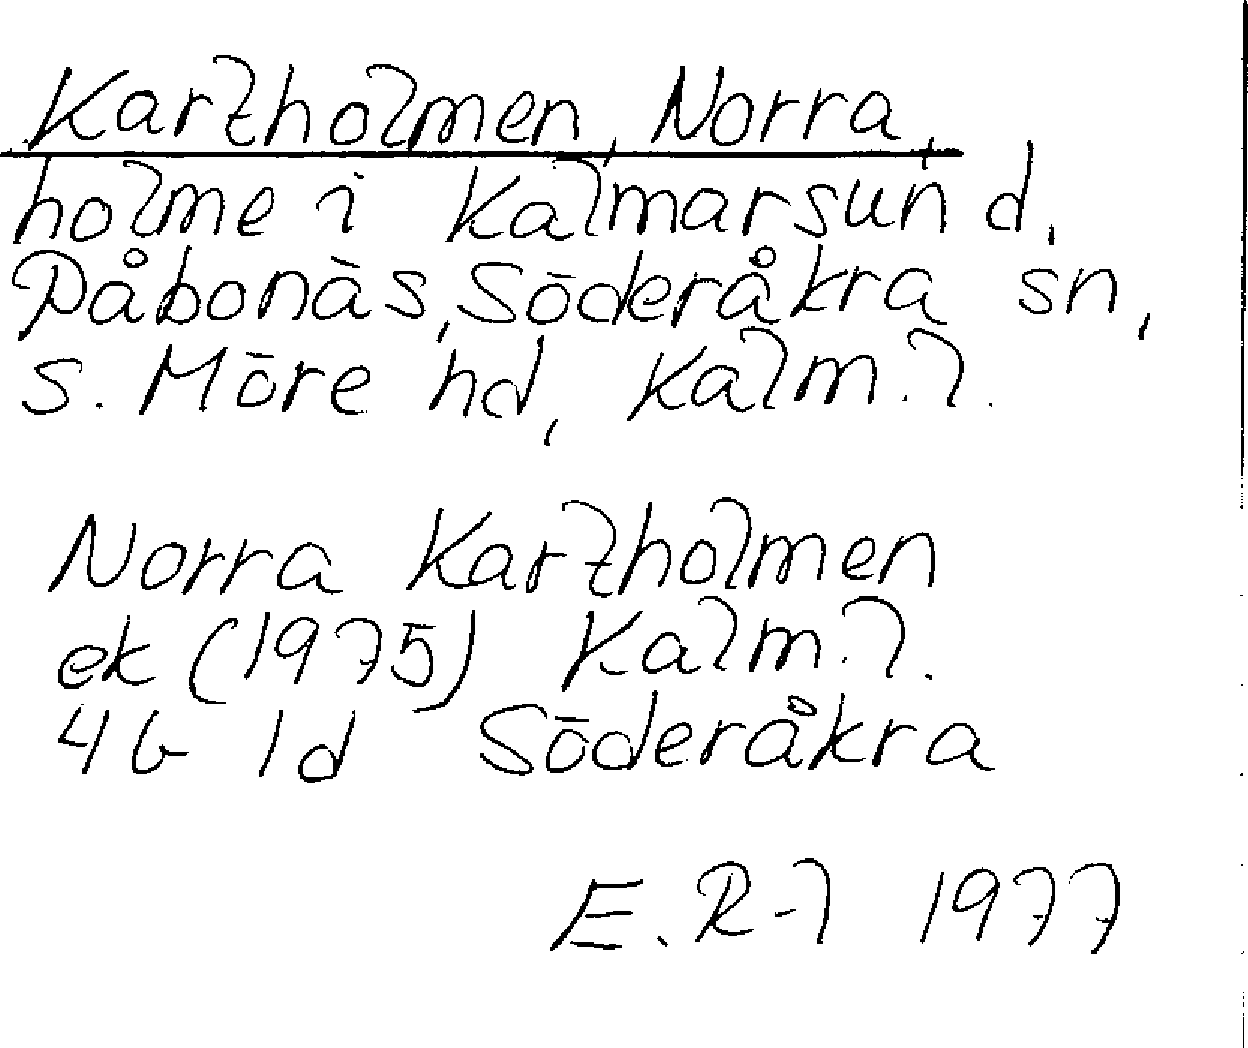 Kartholmen, Norra,
holme i Kalmarsund.
Påbonäs, Söderåkra sn,
S. Möre hd, Kalm. l.
Norra Kartholmen
ek (1975) Kalm. l.
4G 1d Söderåkra
E. R-l 1977